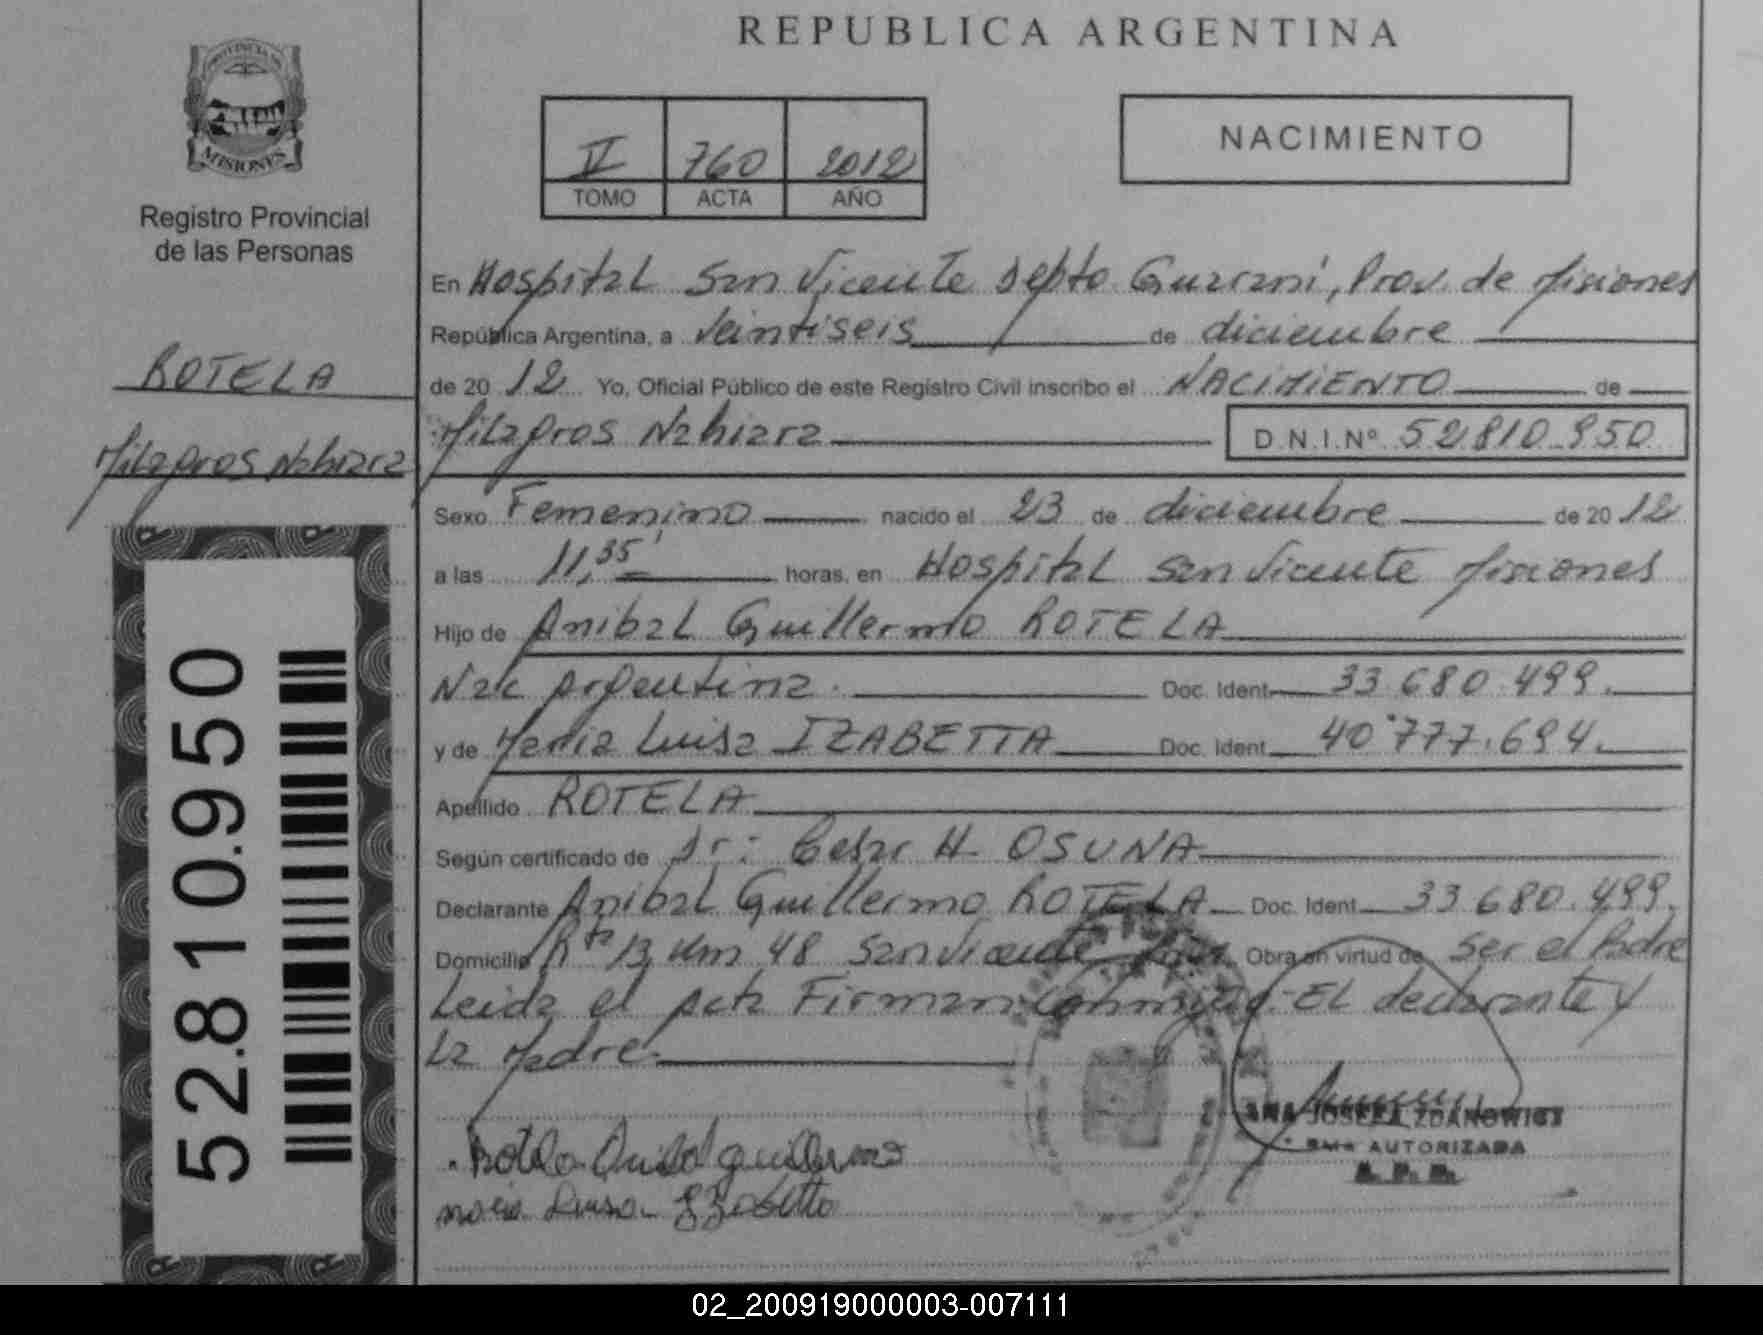 REPUBLICA ARGENTINA
PROVINCIA DE
MISIONES
Registro Provincial
de las Personas
ROTELA
Milagros Nahiara
52.810.950
II 760 2012
TOMO ACTA AÑO
NACIMIENTO
En Hospital San Vicente Depto Guarani, Prov. de Misiones
República Argentina, a Veintiseis de diciembre
de 20 12 Yo, Oficial Público de este Registro Civil inscribo el NACIMIENTO de
Milagros Nahiara D.N.I.Nº 52.810.950
Sexo Femenino nacido el 23 de diciembre de 20 12
a las 11,35' horas, en Hospital San Vicente Misiones
Hijo de Anibal Guillermo ROTELA
Nac Argentina. Doc. Ident. 33.680.499.
y de Maria Luisa IZABETTA Doc. Ident. 40.777.694.
Apellido ROTELA
Según certificado de Dr: Cesar H. OSUNA
Declarante Anibal Guillermo ROTELA Doc. Ident. 33.680.499.
Domicilio Rta 13 Km 48 San Vicente Obra en virtud de Ser el Padre
Leida el acta Firman conmigo: EL declarante y
La Madre.
ANA JOSEFA ZDANOWICZ
AUTORIZADA
Rotela Anibal guillermo
maria Luisa Izabetta
02_200919000003-007111